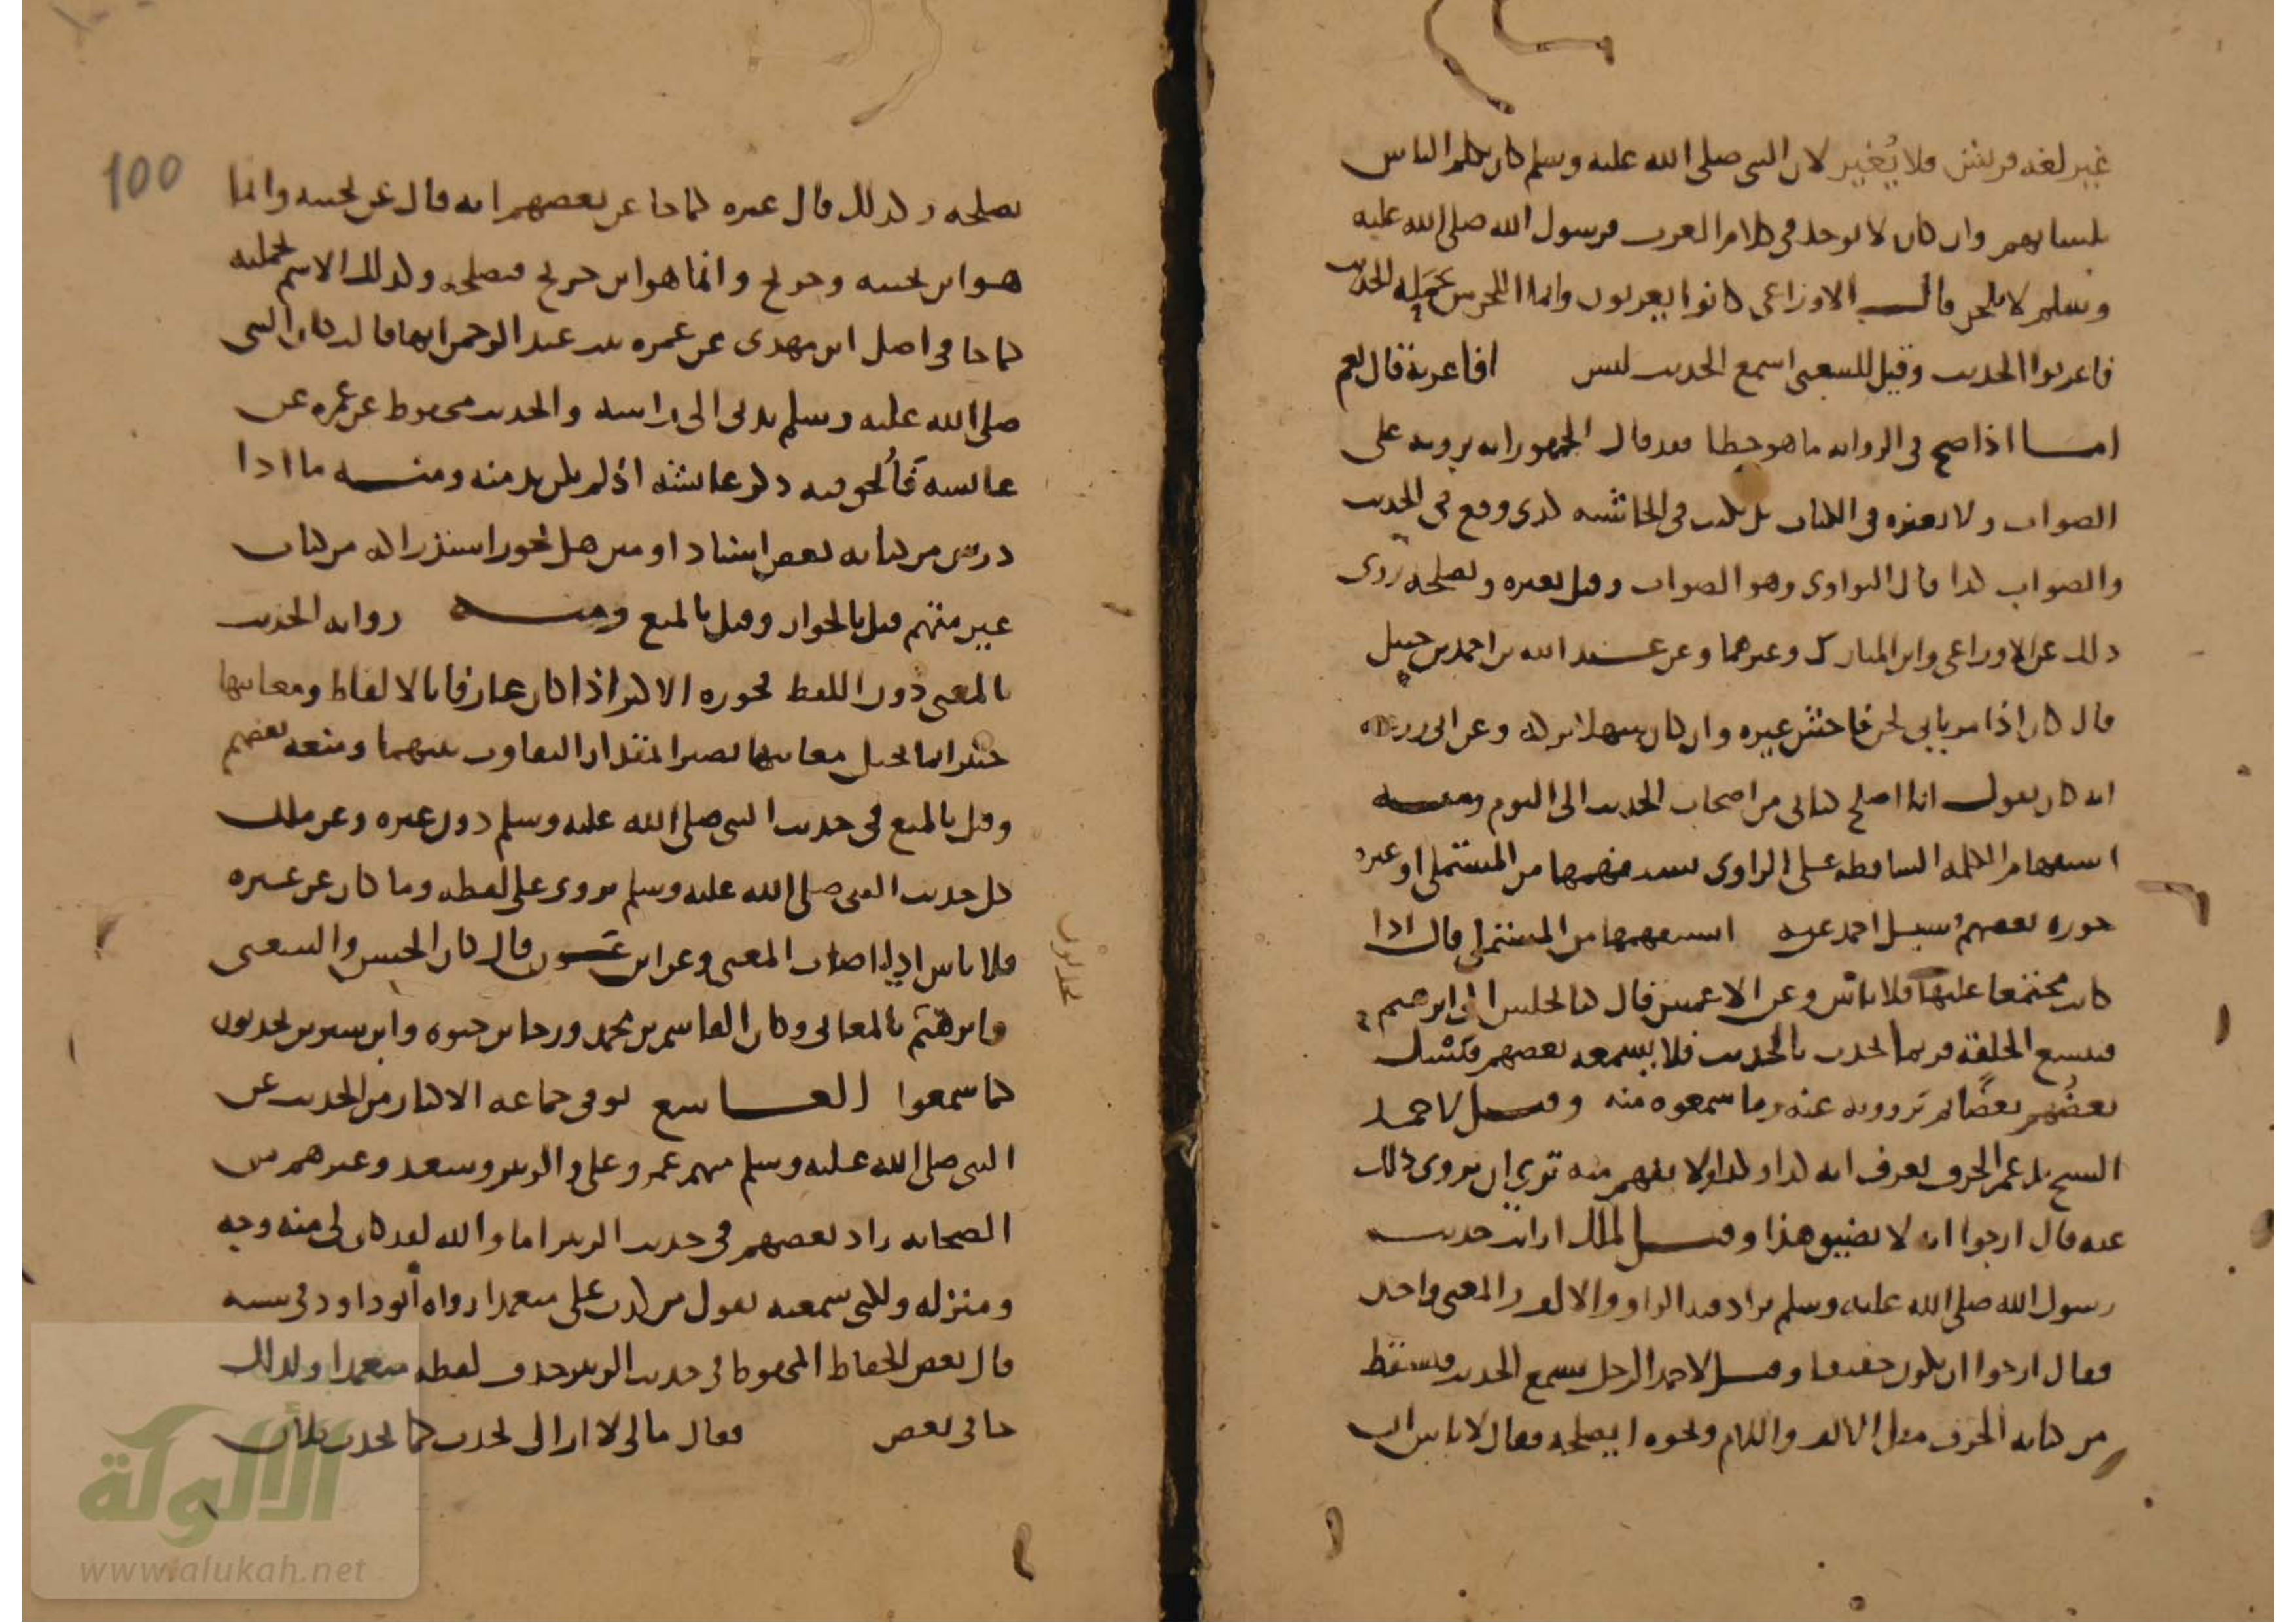 غير لغة قريش فلا يُغير لان النبي صلى الله عليه وسلم كان يكلم الناس
بلسانهم وان كان لا يوجد في كلام العرب فرسول الله صلى الله عليه
وسلم لا يلحن قال الاوزاعي كانوا يعربون وانما اللحن من حملة الحديث
فاعربوا الحديث وقيل للشعبي اسمع الحديث ليس افاعربه قال نعم
اما اذا صح في الرواية ما هو خطا فقد قال الجمهور انه يرويه على
الصواب ولا يغيره في الكتاب بل يكتب في الحاشية كذى وقع في الحديث
والصواب كذا قال النواوي وهو الصواب وقيل يغيره ويصلحه روى
ذلك عن الاوزاعي وابن المبارك وغيرهما وعن عبد الله بن احمد بن حنبل
قال كان اذا مر بابي لحن فاحش غيره وان كان سهلا تركه وعن ابي زرعة
انه كان يقول انا اصلح كتابي من اصحاب الحديث الى اليوم ومنه
استفهام الكلمة الساقطة على الراوي من المستملي او غيره
جوزه بعضهم وسيل احمد عن استفهمها من المستملي قال اذا
كان مجتمعا عليها فلا باس وعن الاعمش قال كنا نجلس الى ابرهيم
فتتسع الحلقة فربما يحدث بالحديث فلا يسمعه بعضهم فيسال
بعضُهم بعضًا ثم يروونه عنه وما سمعوه منه وقيل لاحمد
الشيخ يدغم الحرف يعرف انه كذا وكذا ولا يفهم منه ترى ان يروى ذلك
عنه قال ارجوا ان لا يضيق هذا وقيل لملك ارايت حديث
رسول الله صلى الله عليه وسلم يزاد فيه الواو والالف والمعنى واحد
فقال ارجوا ان يكون خفيفا وقيل لاحمد الرجل يسمع الحديث فيسقط
من كتابه الحرف مثل الالف واللام ونحوه ايصلحه فقال لا باس ان
100
يصلحه وكذلك قال غيره كما جا عن بعضهم انه قال عن بحينه وانما
هو ابن بحينه وجريج وانما هو ابن جريج فيصلحه وكذلك الاسم بجملته
كما جا في اصل ابن مهدي عن عمره بنت عبد الرحمن انها قالت كان النبي
صلى الله عليه وسلم يدني الى راسه والحديث محفوظ عن عمره عن
عائشة فأُلحق فيه ذكر عائشة اذ لم يكن بد منه ومنه ما اذا
درس من كتابه بعض اسناد او متن هل يجوز استدراكه من كتاب
غير متهم قيل بالجواز وقيل بالمنع ومنه رواية الحديث
بالمعنى دون اللفظ يجوزه الاكثر اذا كان عارفا بالالفاظ ومعانيها
خبيرا بما يحيل معانيها بصيرا بمقدار التفاوت بينهما ومنعه بعضهم
وقيل بالمنع في حديث النبي صلى الله عليه وسلم دون غيره وعن ملك
كل حديث النبي صلى الله عليه وسلم يروى على لفظه وما كان عن غيره
فلا باس اذا اصاب المعنى وعن ابن عون قال كان الحسن والشعبي
وابرهيم بالمعاني وكان القاسم بن محمد ورجا بن حيوه وابن سيرين يحدثون
كما سمعوا التاسع توقي جماعة الاكثار من الحديث عن
النبي صلى الله عليه وسلم منهم عمر وعلي والزبير وسعد وغيرهم من
الصحابه زاد بعضهم في حديث الزبير اما والله لقد كان لي منه وجه
ومنزله ولكني سمعته يقول من كذب علي متعمدا رواه أبو داود في سننه
قال بعض الحفاظ المحفوظ في حديث الزبير حذف لفظه متعمدا وكذلك
جا في بعض فقال ما لي لا اراك تحدث كما يحدث فلان
الألوكة
www.alukah.net